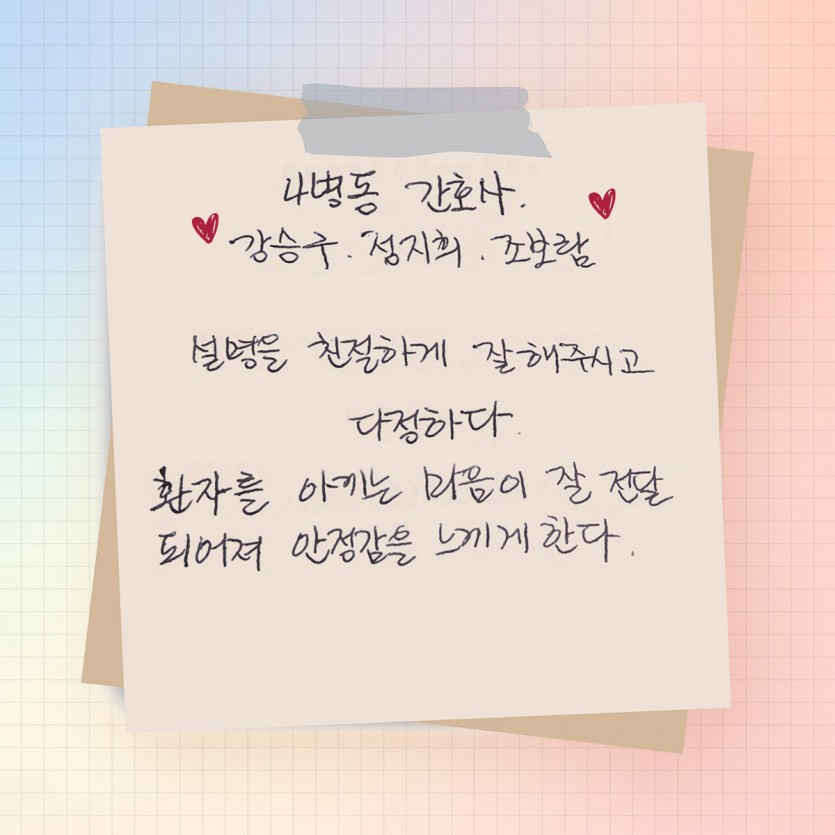 4병동 간호사.
강승구. 정지희. 조보람
설명을 친절하게 잘해주시고
다정하다.
환자를 아끼는 마음이 잘 전달
되어져 안정감을 느끼게 한다.